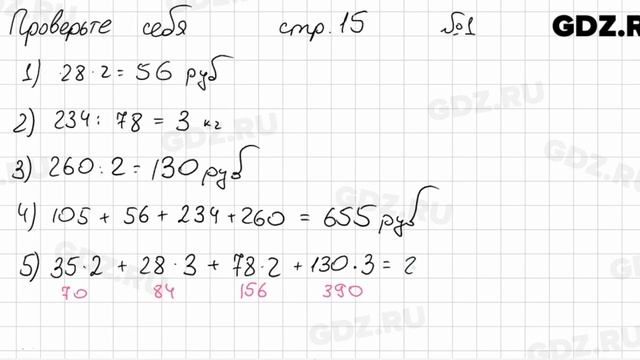 Проверьте себя стр. 15 №1 GDZ.R
1) 28·2 = 56 руб
2) 234 : 78 = 3 кг
3) 260 : 2 = 130 руб
4) 105 + 56 + 234 + 260 = 655 руб
5) 35·2 + 28·3 + 78·2 + 130·3 = 2
70 84 156 390
GDZ.RU
GDZ.RU
GDZ.RU
GDZ.RU
GDZ.RU
GDZ.RU